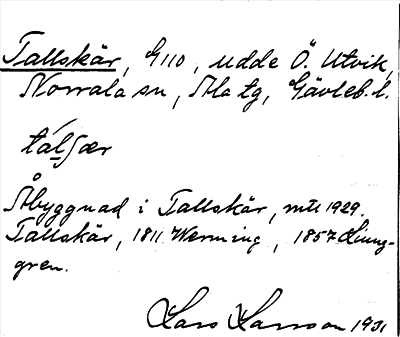 Tallskär, G110, udde Ö. Utvik,
Norrala sn, Ala tg, Gävleb. l.
tálʃær
Åbyggnad i Tallskär, mtl 1929.
Tallskär, 1811 Werming, 1857 Ljung-
gren.
Lars Larsson 1931